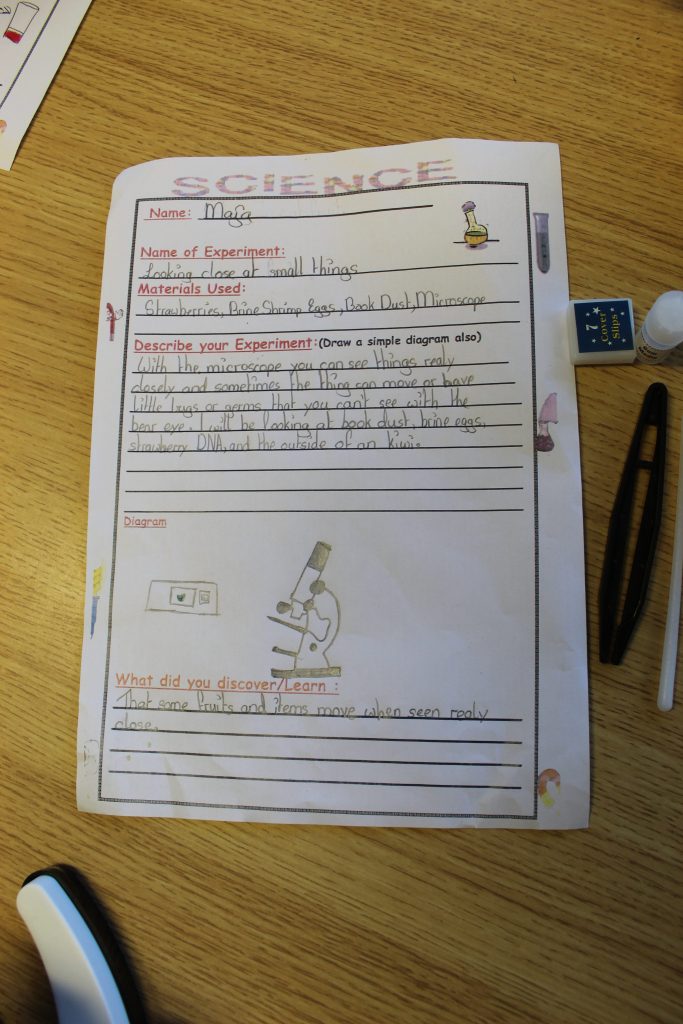 SCIENCE
Name: Maja
Name of Experiment:
Looking close at small things
Materials Used:
Strawberries, Brine Shrimp Eggs, Book Dust, Microscope
Describe your Experiment:(Draw a simple diagram also)
With the microscope you can see things realy
closely and sometimes the thing can move or have
little bugs or germs that you can't see with the
bear eye. I will be looking at book dust, brine eggs,
strawberry DNA, and the outside of an kiwi.
Diagram
What did you discover/Learn :
That some fruits and items move when seen realy
close.
7
Cover
Slips